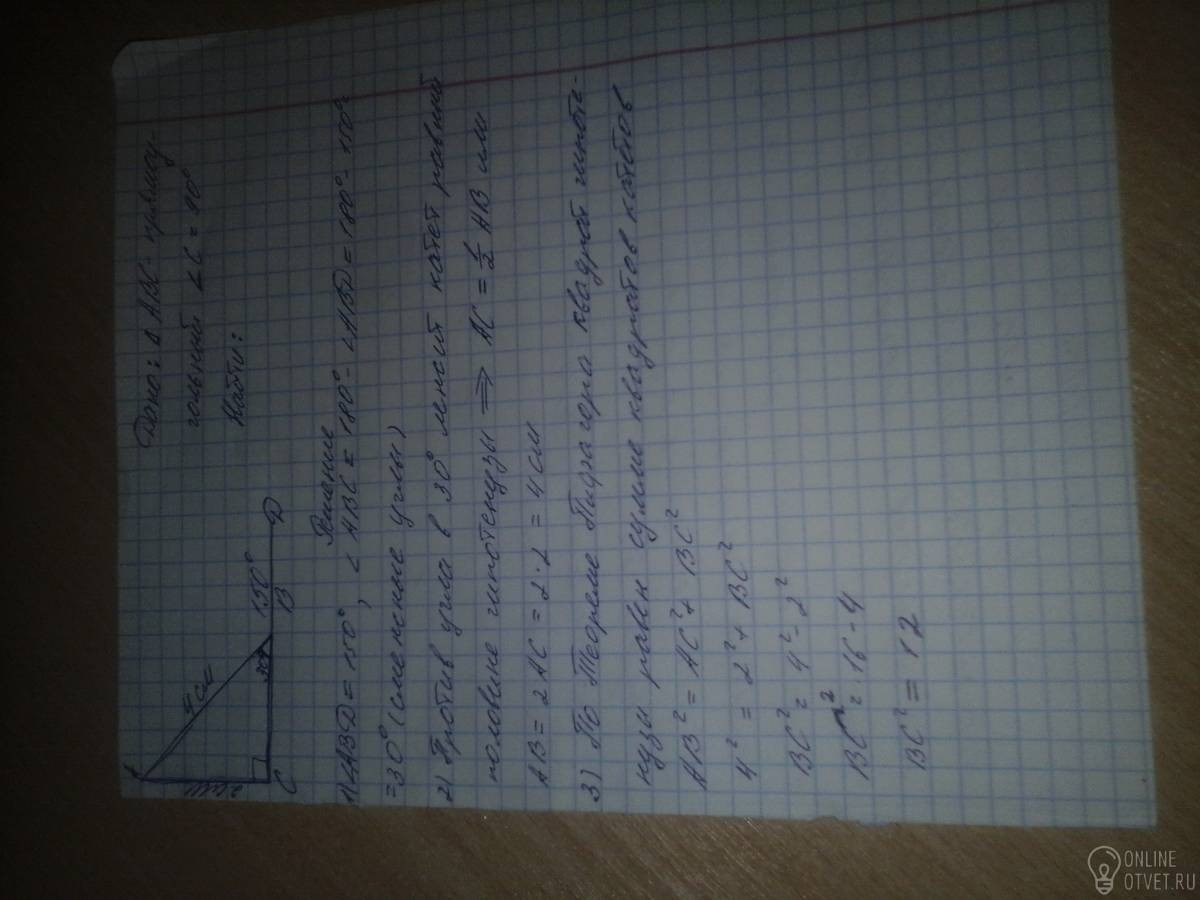 Дано: Δ ABC - прямоу-
гольный ∠C = 90°
Найти:
4 см
30°
150°
C
B
D
Решение
1) ∠ABD = 150°, ∠ABC = 180° - ∠ABD = 180° - 150°
= 30° (смежные углы)
2) Против угла в 30° лежит катет равный
половине гипотенузы ⇒ AC = 1/2 AB или
AB = 2 AC = 2·2 = 4 см
3) По Теореме Пифагора квадрат гипоте-
нузы равен сумме квадратов катетов
AB² = AC² + BC²
4² = 2² + BC²
BC² = 4² - 2²
BC² = 16 - 4
BC² = 12
ONLINE
OTVET.RU